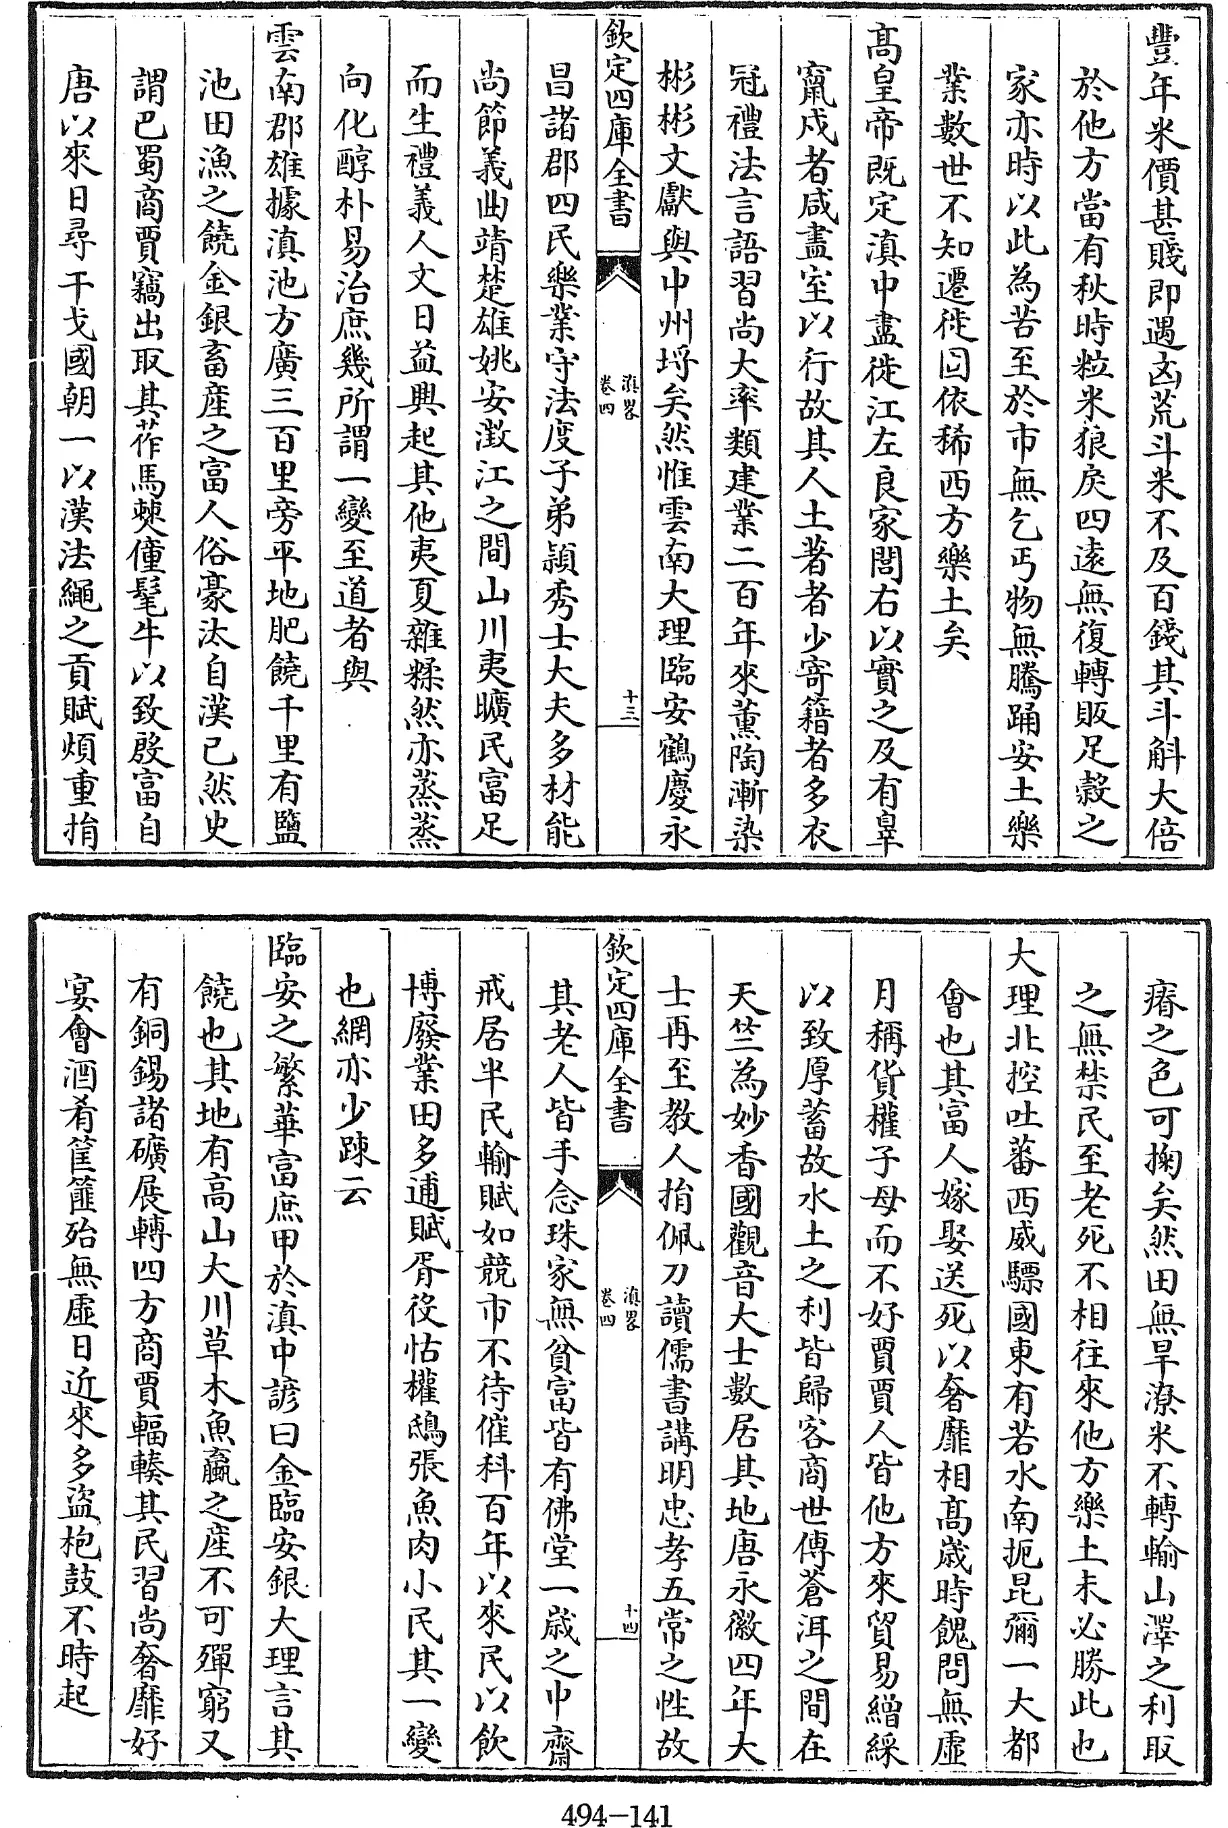 豐年米價甚賤即遇凶荒斗米不及百錢其斗斛大倍
於他方當有秋時粒米狼戾四遠無復轉販足穀之
家亦時以此為苦至於市無乞丐物無騰踊安土樂
業數世不知遷徙囙依稀西方樂土矣
高皇帝既定滇中盡徙江左良家閭右以實之及有辠
竄戍者咸盡室以行故其人土著者少寄籍者多衣
冠禮法言語習尚大率類建業二百年來薰陶漸染
彬彬文獻與中州埒矣然惟雲南大理臨安鶴慶永
欽定四庫全書
滇畧
卷四
十三
昌諸郡四民樂業守法度子弟穎秀士大夫多材能
尚節義曲靖楚雄姚安澂江之間山川夷曠民富足
而生禮義人文日益興起其他夷夏雜糅然亦蒸蒸
向化醇朴易治庶幾所謂一變至道者與
雲南郡雄據滇池方廣三百里旁平地肥饒千里有鹽
池田漁之饒金銀畜產之富人俗豪汰自漢已然史
謂巴蜀商賈竊出取其莋馬僰僮髦牛以致殷富自
唐以來日尋干戈國朝一以漢法繩之貢賦煩重捎
瘠之色可掬矣然田無旱潦米不轉輸山澤之利取
之無禁民至老死不相往來他方樂土未必勝此也
大理北控吐蕃西威驃國東有若水南扼昆彌一大都
會也其富人嫁娶送死以奢靡相高歲時餽問無虛
月稱貨權子母而不好賈賈人皆他方來貿易繒綵
以致厚蓄故水土之利皆歸客商世傳蒼洱之間在
天竺為妙香國觀音大士數居其地唐永徽四年大
士再至教人捎佩刀讀儒書講明忠孝五常之性故
欽定四庫全書
滇畧
卷四
十四
其老人皆手念珠家無貧富皆有佛堂一歲之中齋
戒居半民輸賦如競市不待催科百年以來民以飲
博廢業田多逋賦胥役怙權鴟張魚肉小民其一變
也網亦少踈云
臨安之繁華富庶甲於滇中諺曰金臨安銀大理言其
饒也其地有高山大川草木魚蠃之產不可殫窮又
有銅錫諸礦展轉四方商賈輻輳其民習尚奢靡好
宴會酒肴筐篚殆無虛日近來多盜枹鼓不時起
494-141